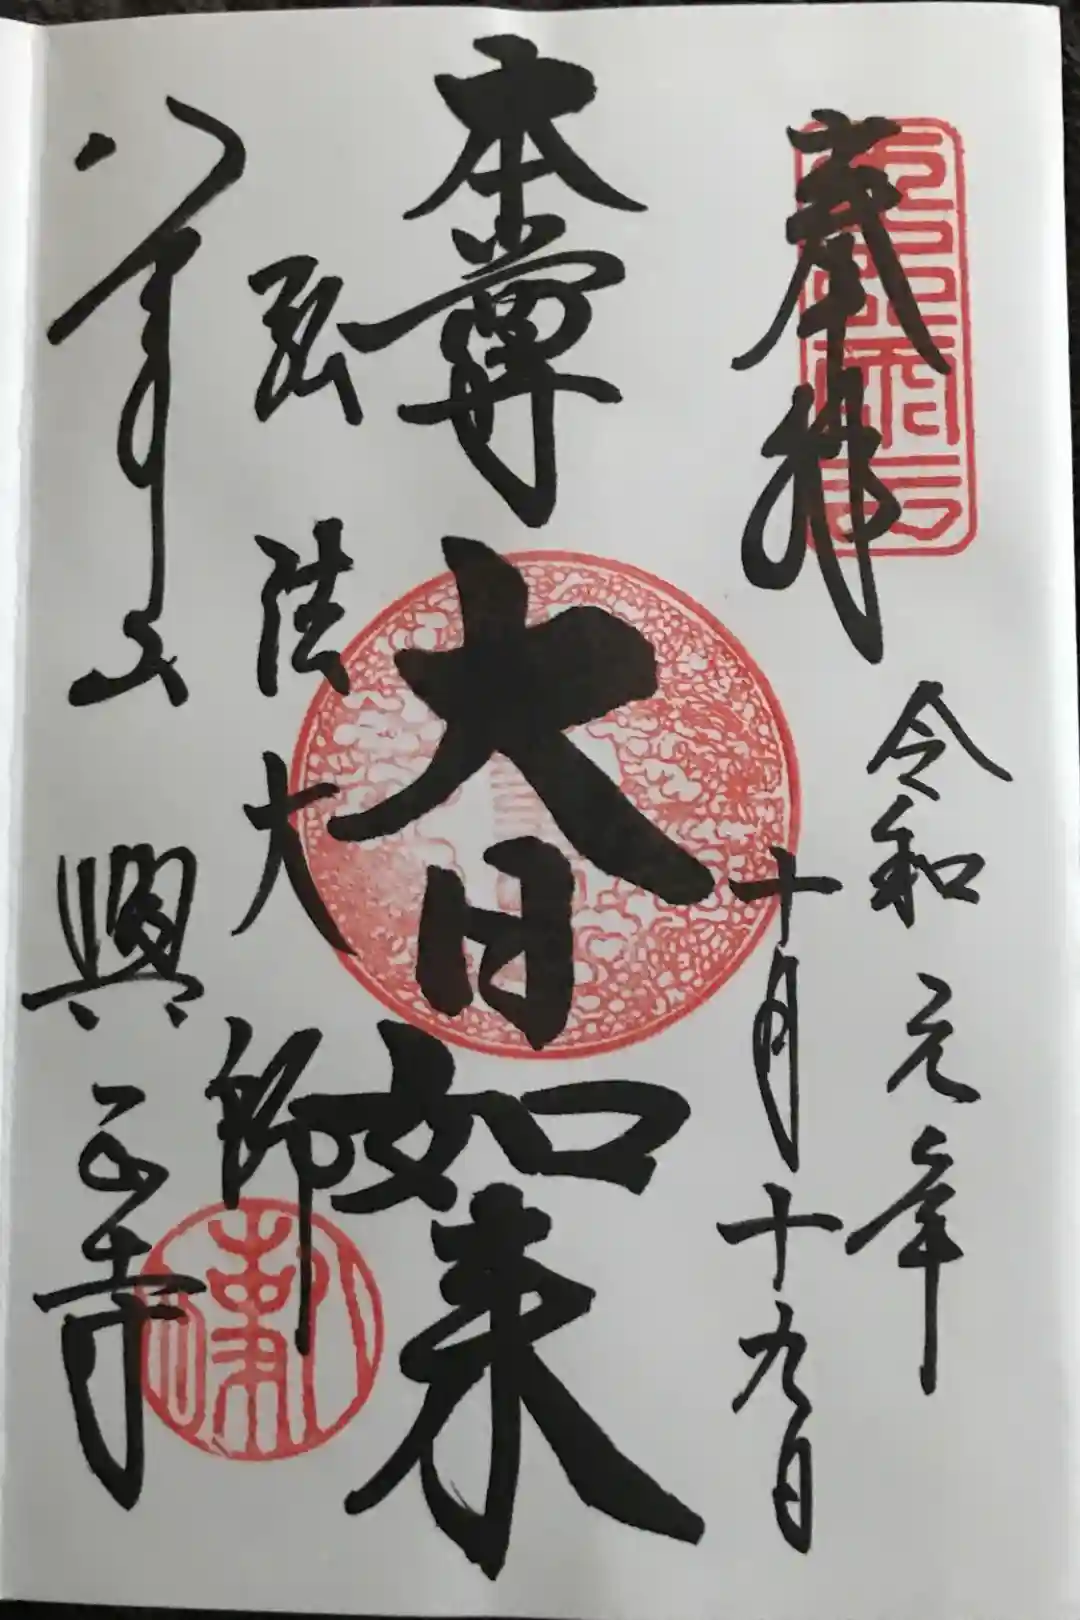 奉拝
令和元年
十月十九日
本尊大日如来
弘法大師
八事山興正寺